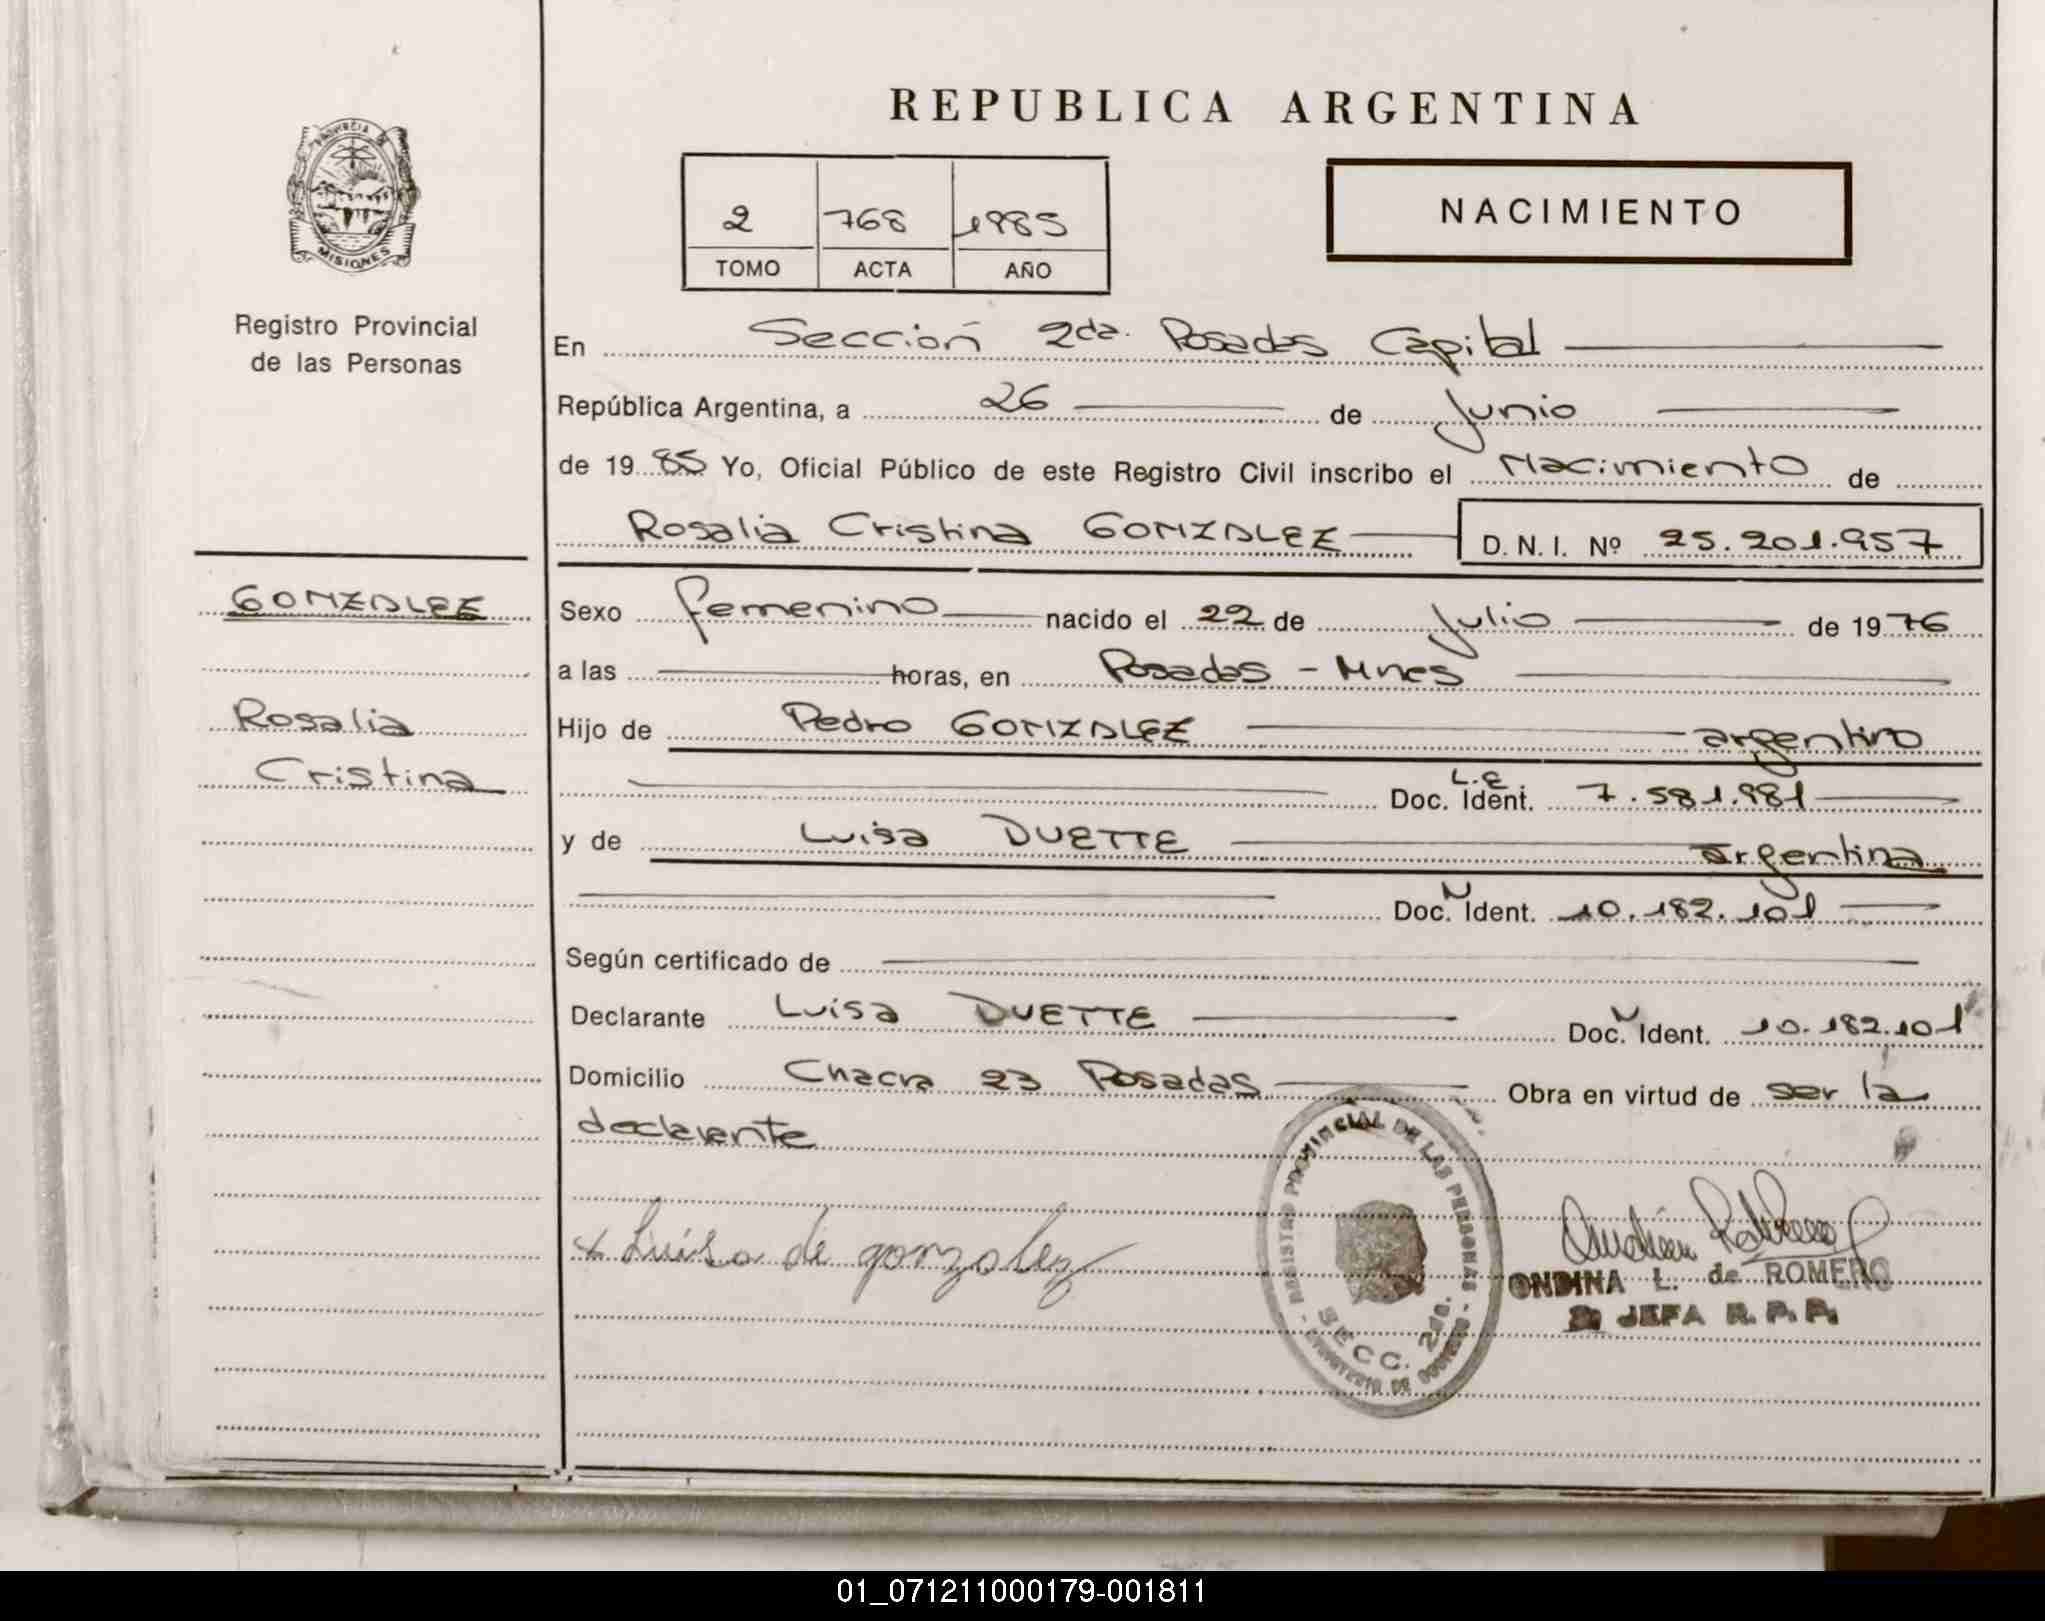 PROVINCIA DE
MISIONES
Registro Provincial
de las Personas
GONZALEZ
Rosalia
Cristina
REPUBLICA ARGENTINA
2 768 1985
TOMO ACTA AÑO
NACIMIENTO
En Sección 2da. Posadas Capital
República Argentina, a 26 de Junio
de 1985 Yo, Oficial Público de este Registro Civil inscribo el Nacimiento de
Rosalia Cristina GONZALEZ D. N. I. Nº 25.201.957
Sexo femenino nacido el 22 de Julio de 1976
a las horas, en Posadas - Mnes
Hijo de Pedro GONZALEZ argentino
L.E
Doc. Ident. 7.581.981
y de Luisa DUETTE argentina
Doc. Ident. 10.182.101
Según certificado de
Declarante Luisa DUETTE Doc. Ident. 10.182.101
Domicilio Chacra 23 Posadas Obra en virtud de ser la
declarante
x Luisa de gonzalez
REGISTRO PROVINCIAL DE LAS PERSONAS
SECC. 2da.
MINISTERIO DE GOBIERNO
ONDINA L. de ROMERO
JEFA R. P. P.
01_071211000179-001811